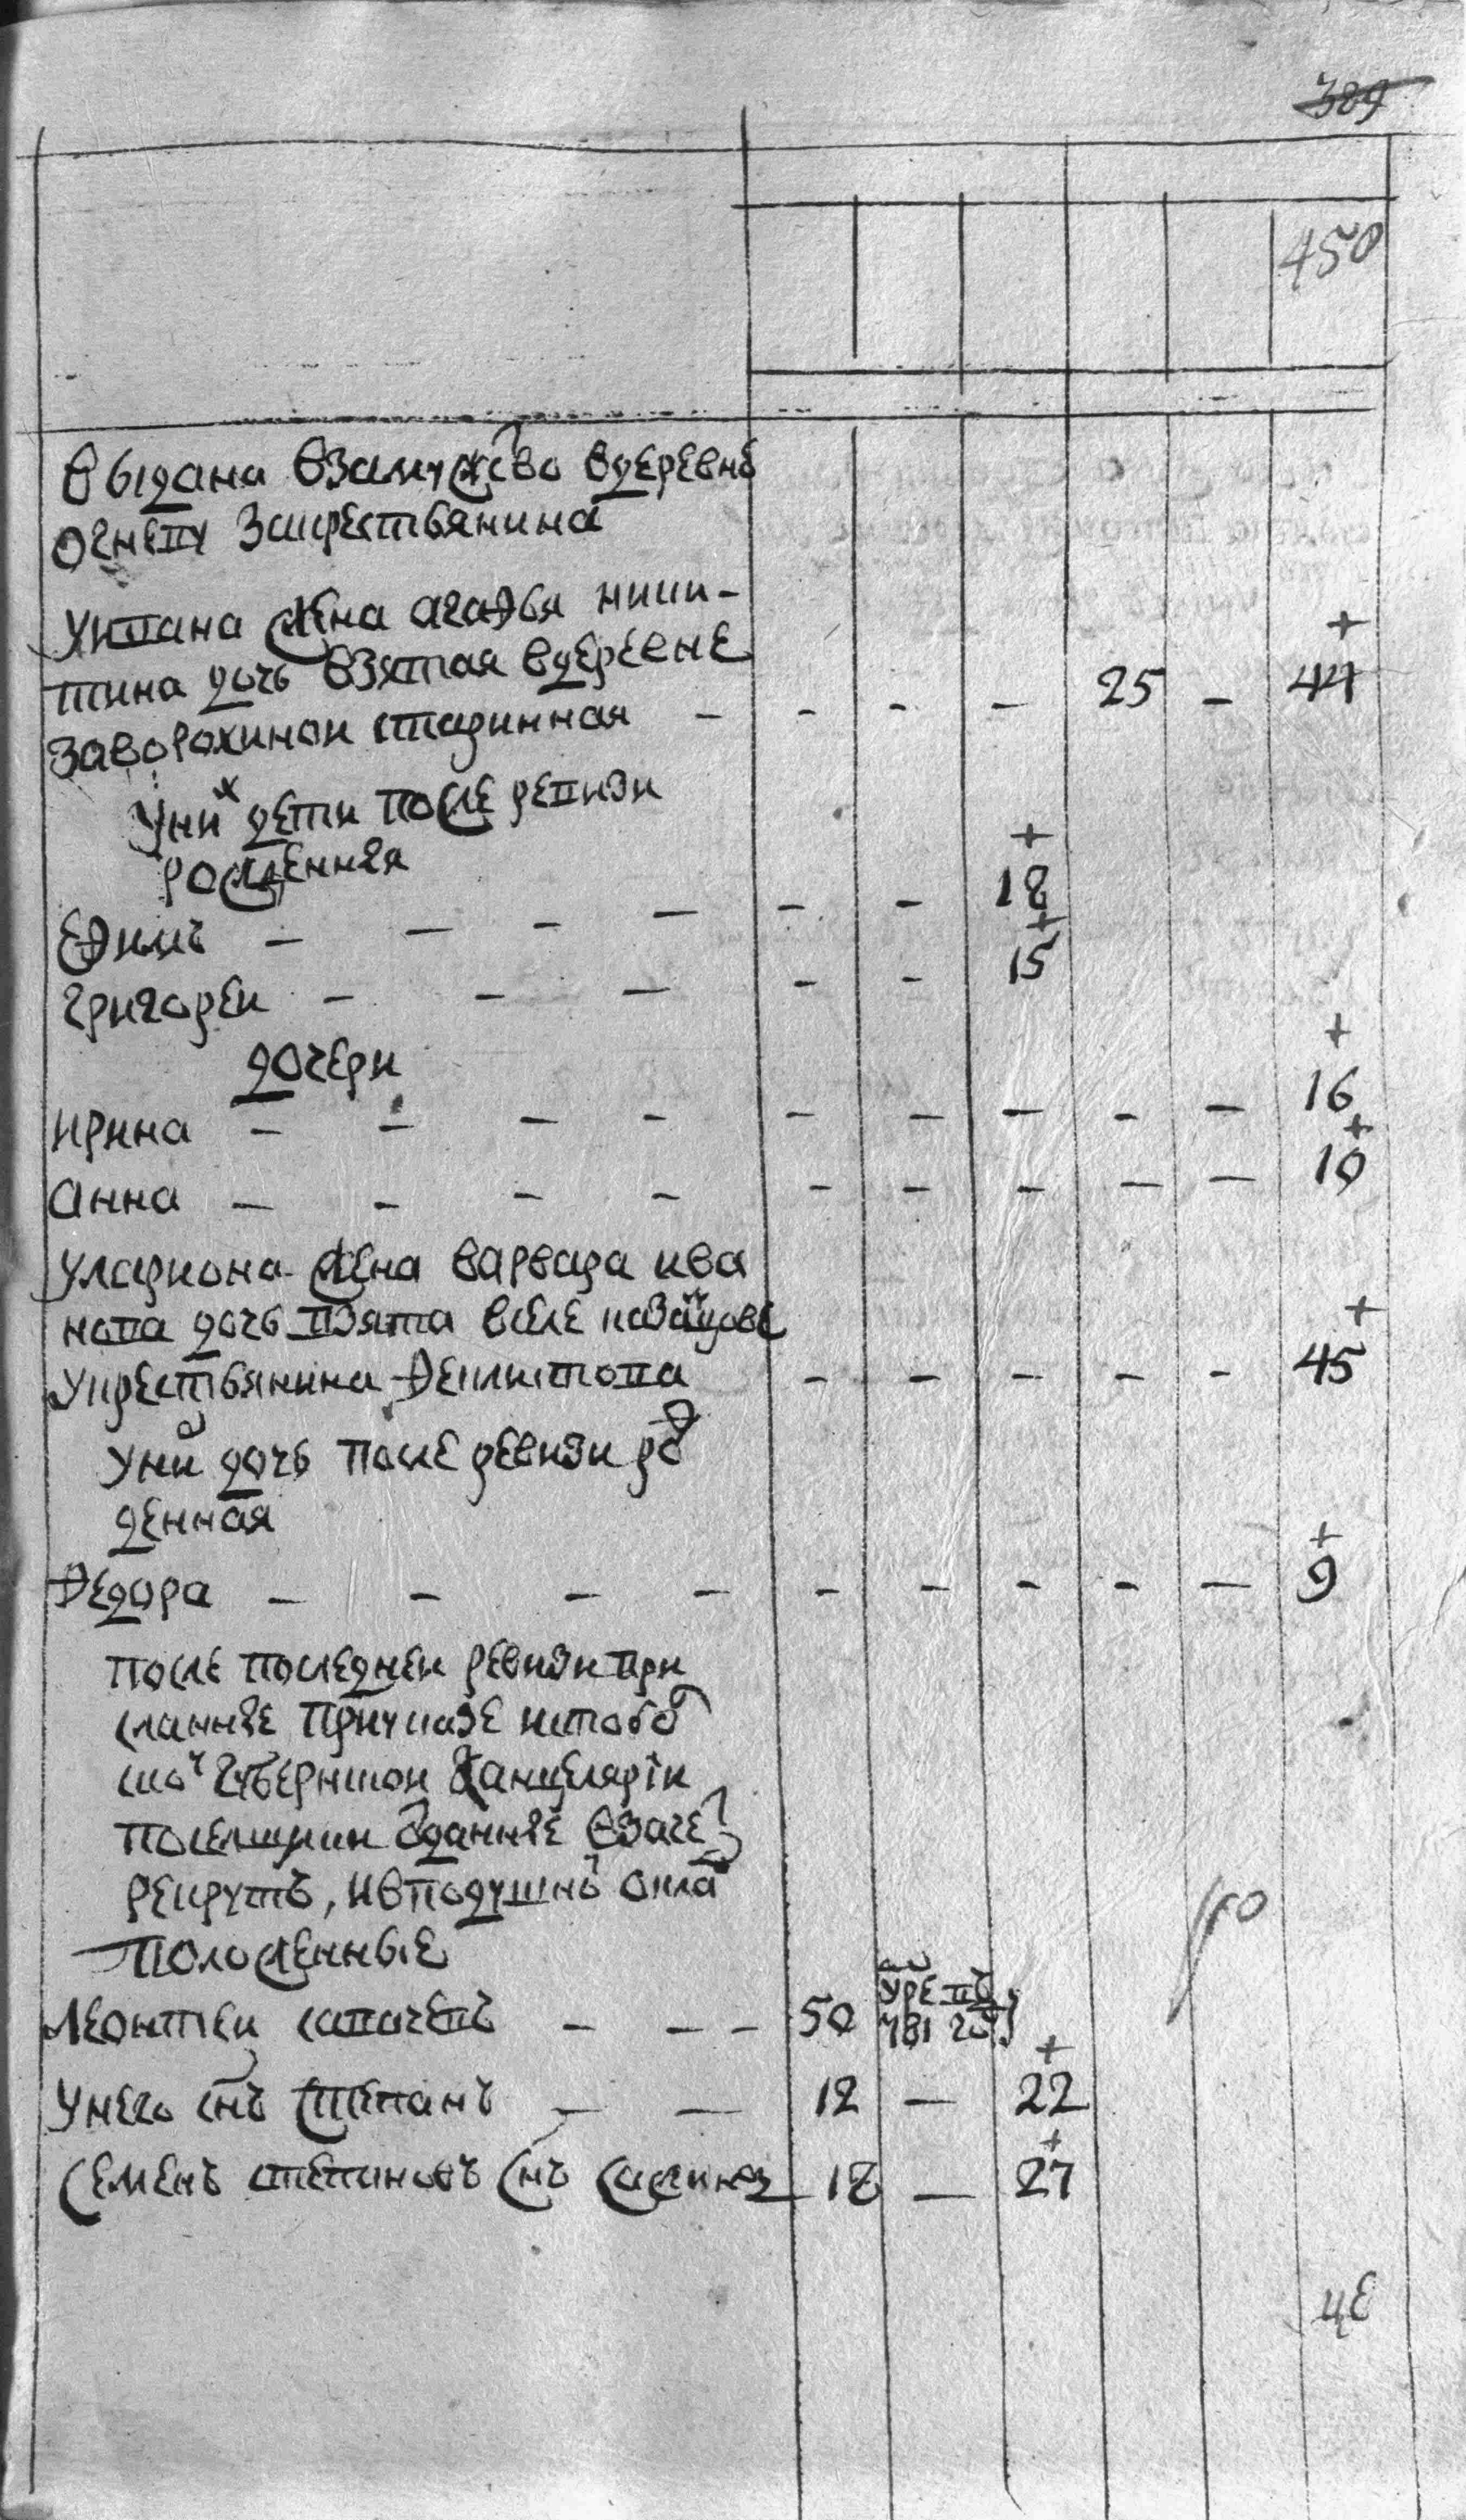 389
450
выдана взамужство вдеревню
огневу закрестьянина
Укипана жена агафья ники-
тина дочь взятая вдеревне
заворохинои старинная - - - - 25 - 44
Уних дети после ревизи
рожденныя
Ефимъ - - - - - - 18
григореи - - - - - 15
дочери
ирина - - - - - - - - - 16
анна - - - - - - - - - 10
улариона жена варвара ива
нова дочь взята вселе
укрестьянина феклистова - - - - - 45
Уних дочь после ревизи рож
денная
Федора - - - - - - - - - 9
после последнеи ревизи при
сланные приуказе истобол
ской губернскои канцелярїи
помещики отданные взачет
рекрутъ, ивподушнои оклад
положенные
леонтеи - - - 50
Унего снъ степанъ - - 12 - 22
Семенъ степановъ снъ 18 - 27
48